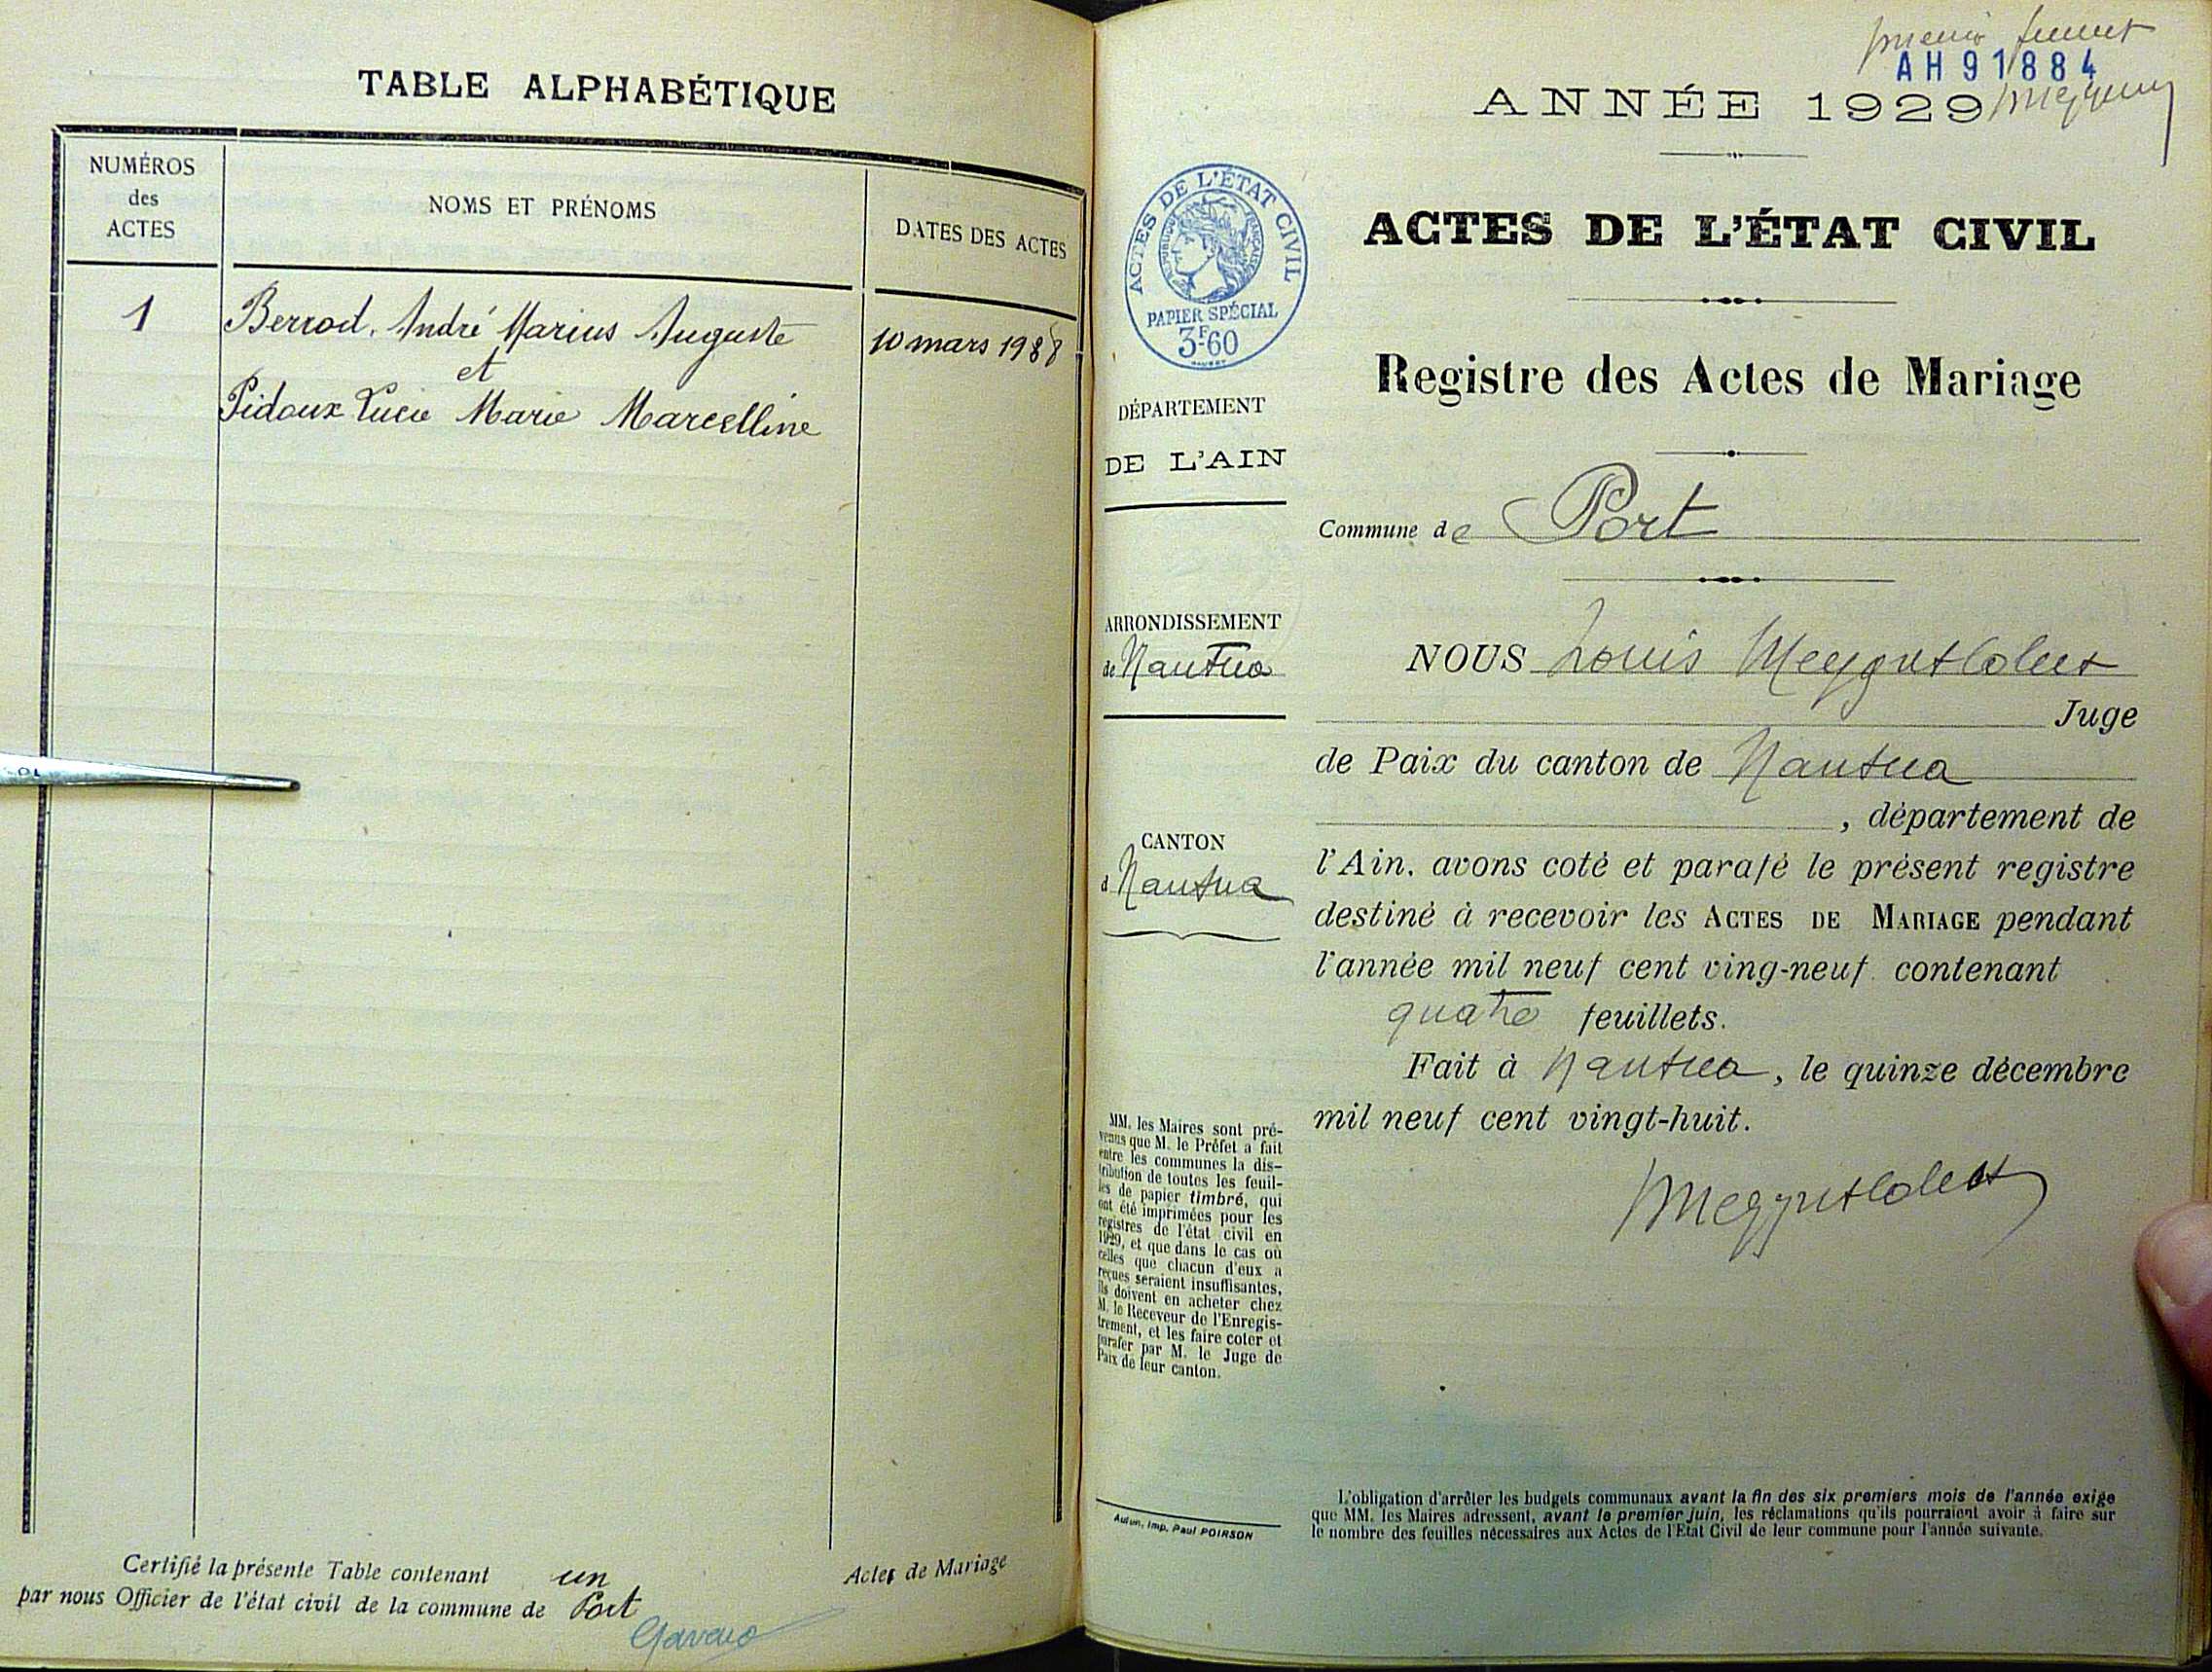 TABLE ALPHABÉTIQUE
NUMÉROS
des
ACTES
NOMS ET PRÉNOMS
DATES DES ACTES
1
Berrod, André Marius Auguste
10 mars 1928
et
Pidoux Lucie Marie Marcelline
Certifié la présente Table contenant un Actes de Mariage
par nous Officier de l'état civil de la commune de Port
AH91884
ANNÉE 1929
ACTES DE L'ÉTAT CIVIL
PAPIER SPÉCIAL
3F60
DÉPARTEMENT
DE L'AIN
ARRONDISSEMENT
de Nantua
CANTON
d Nantua
MM. les Maires sont pré-
venus que M. le Préfet a fait
entre les communes la dis-
tribution de toutes les feuil-
les de papier timbré, qui
ont été imprimées pour les
registres de l'état civil en
1929, et que dans le cas où
celles que chacun d'eux a
reçues seraient insuffisantes,
ils doivent en acheter chez
M. le Receveur de l'Enregis-
trement, et les faire coter et
parafer par M. le Juge de
Paix de leur canton.
Autun, Imp. Paul POIRSON
ACTES DE L'ÉTAT CIVIL
Registre des Actes de Mariage
Commune de Port
NOUS Louis
Juge
de Paix du canton de Nantua
, département de
l'Ain, avons coté et parafé le présent registre
destiné à recevoir les ACTES DE MARIAGE pendant
l'année mil neuf cent ving-neuf contenant
quatre feuillets.
Fait à Nantua, le quinze décembre
mil neuf cent vingt-huit.
L'obligation d'arrêter les budgets communaux avant la fin des six premiers mois de l'année exige
que MM. les Maires adressent, avant le premier juin, les réclamations qu'ils pourraient avoir à faire sur
le nombre des feuilles nécessaires aux Actes de l'Etat Civil de leur commune pour l'année suivante.